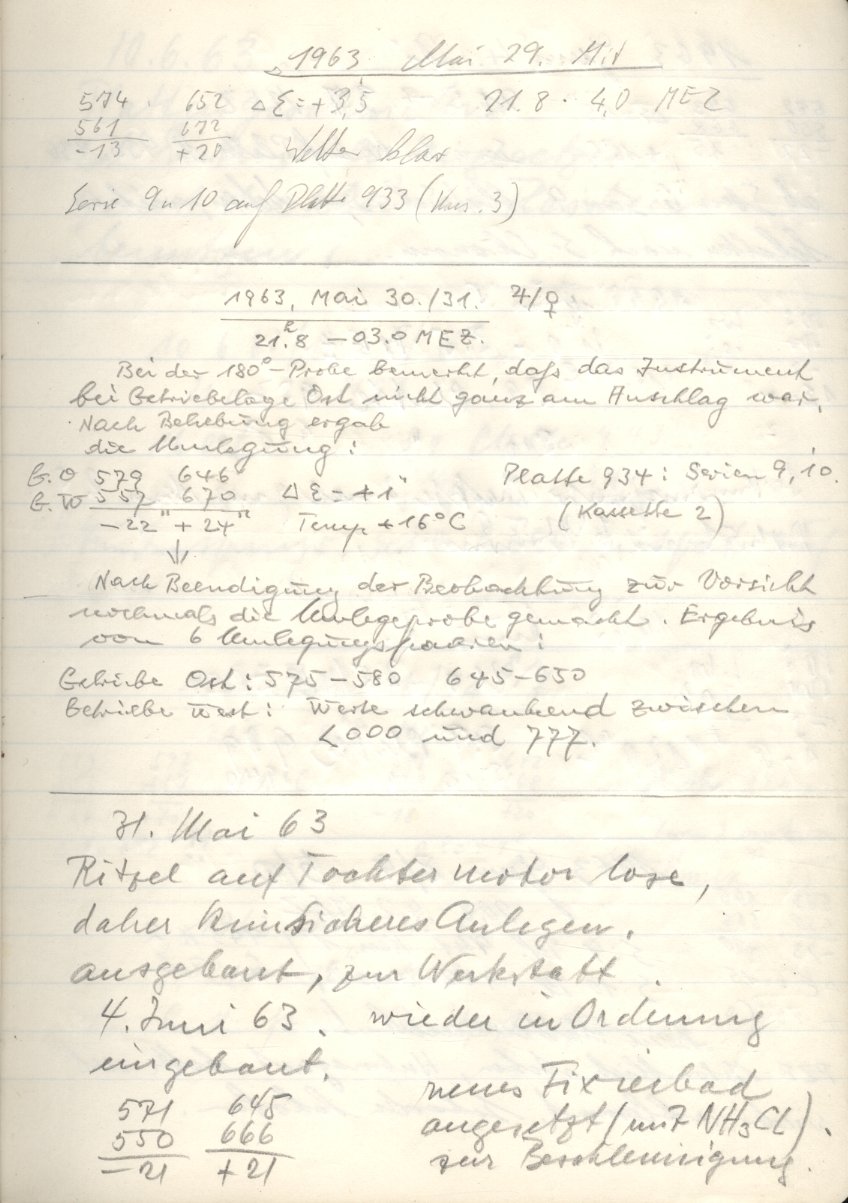 1963 Mai 29. Mit
574 652 Δε = +3,5 21.8 - 4,0 MEZ
561 672
-13 +20 Wetter klar
Serie 9 u 10 auf Platte 933 (Kas. 3)
1963, Mai 30./31. ♃/♀
21.ʰ8 – 03.0 MEZ.
Bei der 180°-Probe bemerkt, daß das Instrument
bei Getriebelage Ost nicht ganz am Anschlag war.
Nach Behebung ergab
die Umlegung:
G. O 579 646 Platte 934: Serien 9, 10.
G. W 557 670 Δε = +1" (Kassette 2)
-22" +24" Temp. +16°C
↓
Nach Beendigung der Beobachtung zur Vorsicht
nochmals die Umlegeprobe gemacht. Ergebnis
von 6 Umlegungspaaren:
Getriebe Ost: 575–580 645–650
Getriebe West: Werte schwankend zwischen
<000 und 777.
31. Mai 63
Ritzel auf Tochtermotor lose,
daher kein sicheres Anlegen.
ausgebaut, zur Werkstatt.
4. Juni 63. wieder in Ordnung
eingebaut.
571 645
550 666
-21 +21
neues Fixierbad
angesetzt (mit NH3Cl).
zur Beschleunigung.